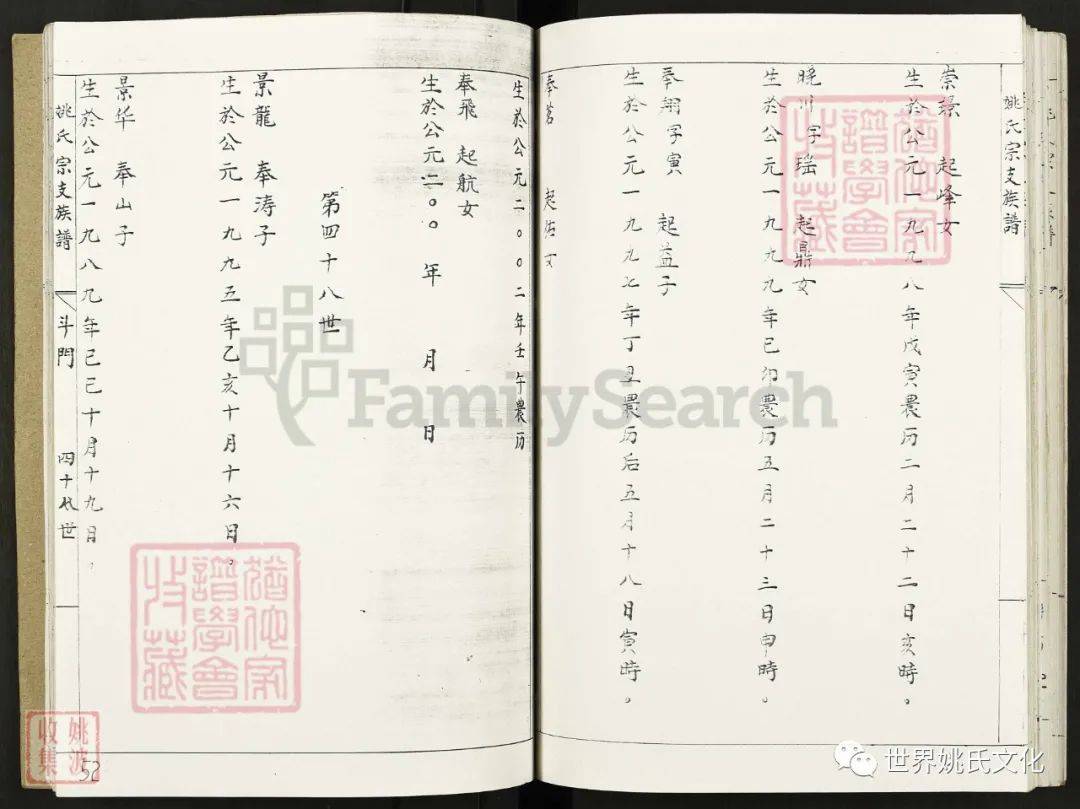 姚氏宗支族譜
崇璟 起峰女
生於公元一九九八年戊寅農历二月二十二日亥時。
晚川字瑶 起鼎女
生於公元一九九九年己卯農历五月二十三日申時。
奉翔字寅 起益子
生於公元一九九七年丁丑農历后五月十八日寅時。
奉茗 起佑女
生於公元二〇〇二年壬午農历
奉飛 起航女
生於公元二〇〇 年 月 日
第四十八世
景龍 奉涛子
生於公元一九九五年乙亥十月十六日。
景华 奉山子
生於公元一九八九年己巳十月十九日。
姚氏宗支族譜 斗門 四十八世
52
猶他家譜學會收藏
猶他家譜學會收藏
姚波收集
FamilySearch
世界姚氏文化